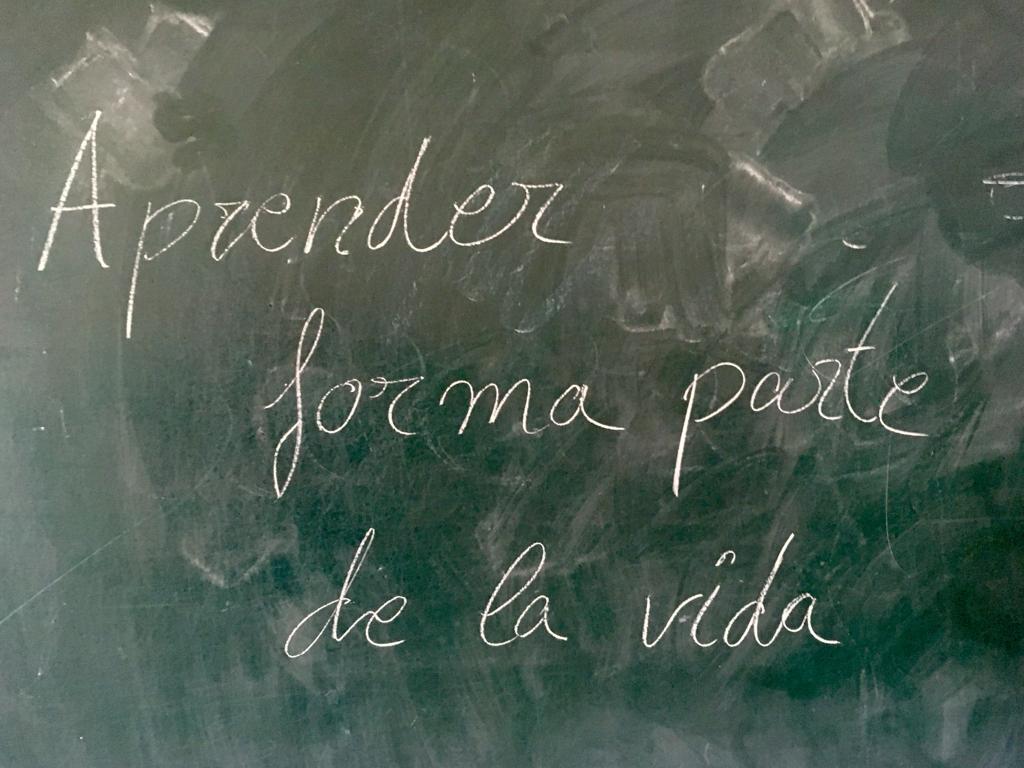 Aprender
forma parte
de la vida